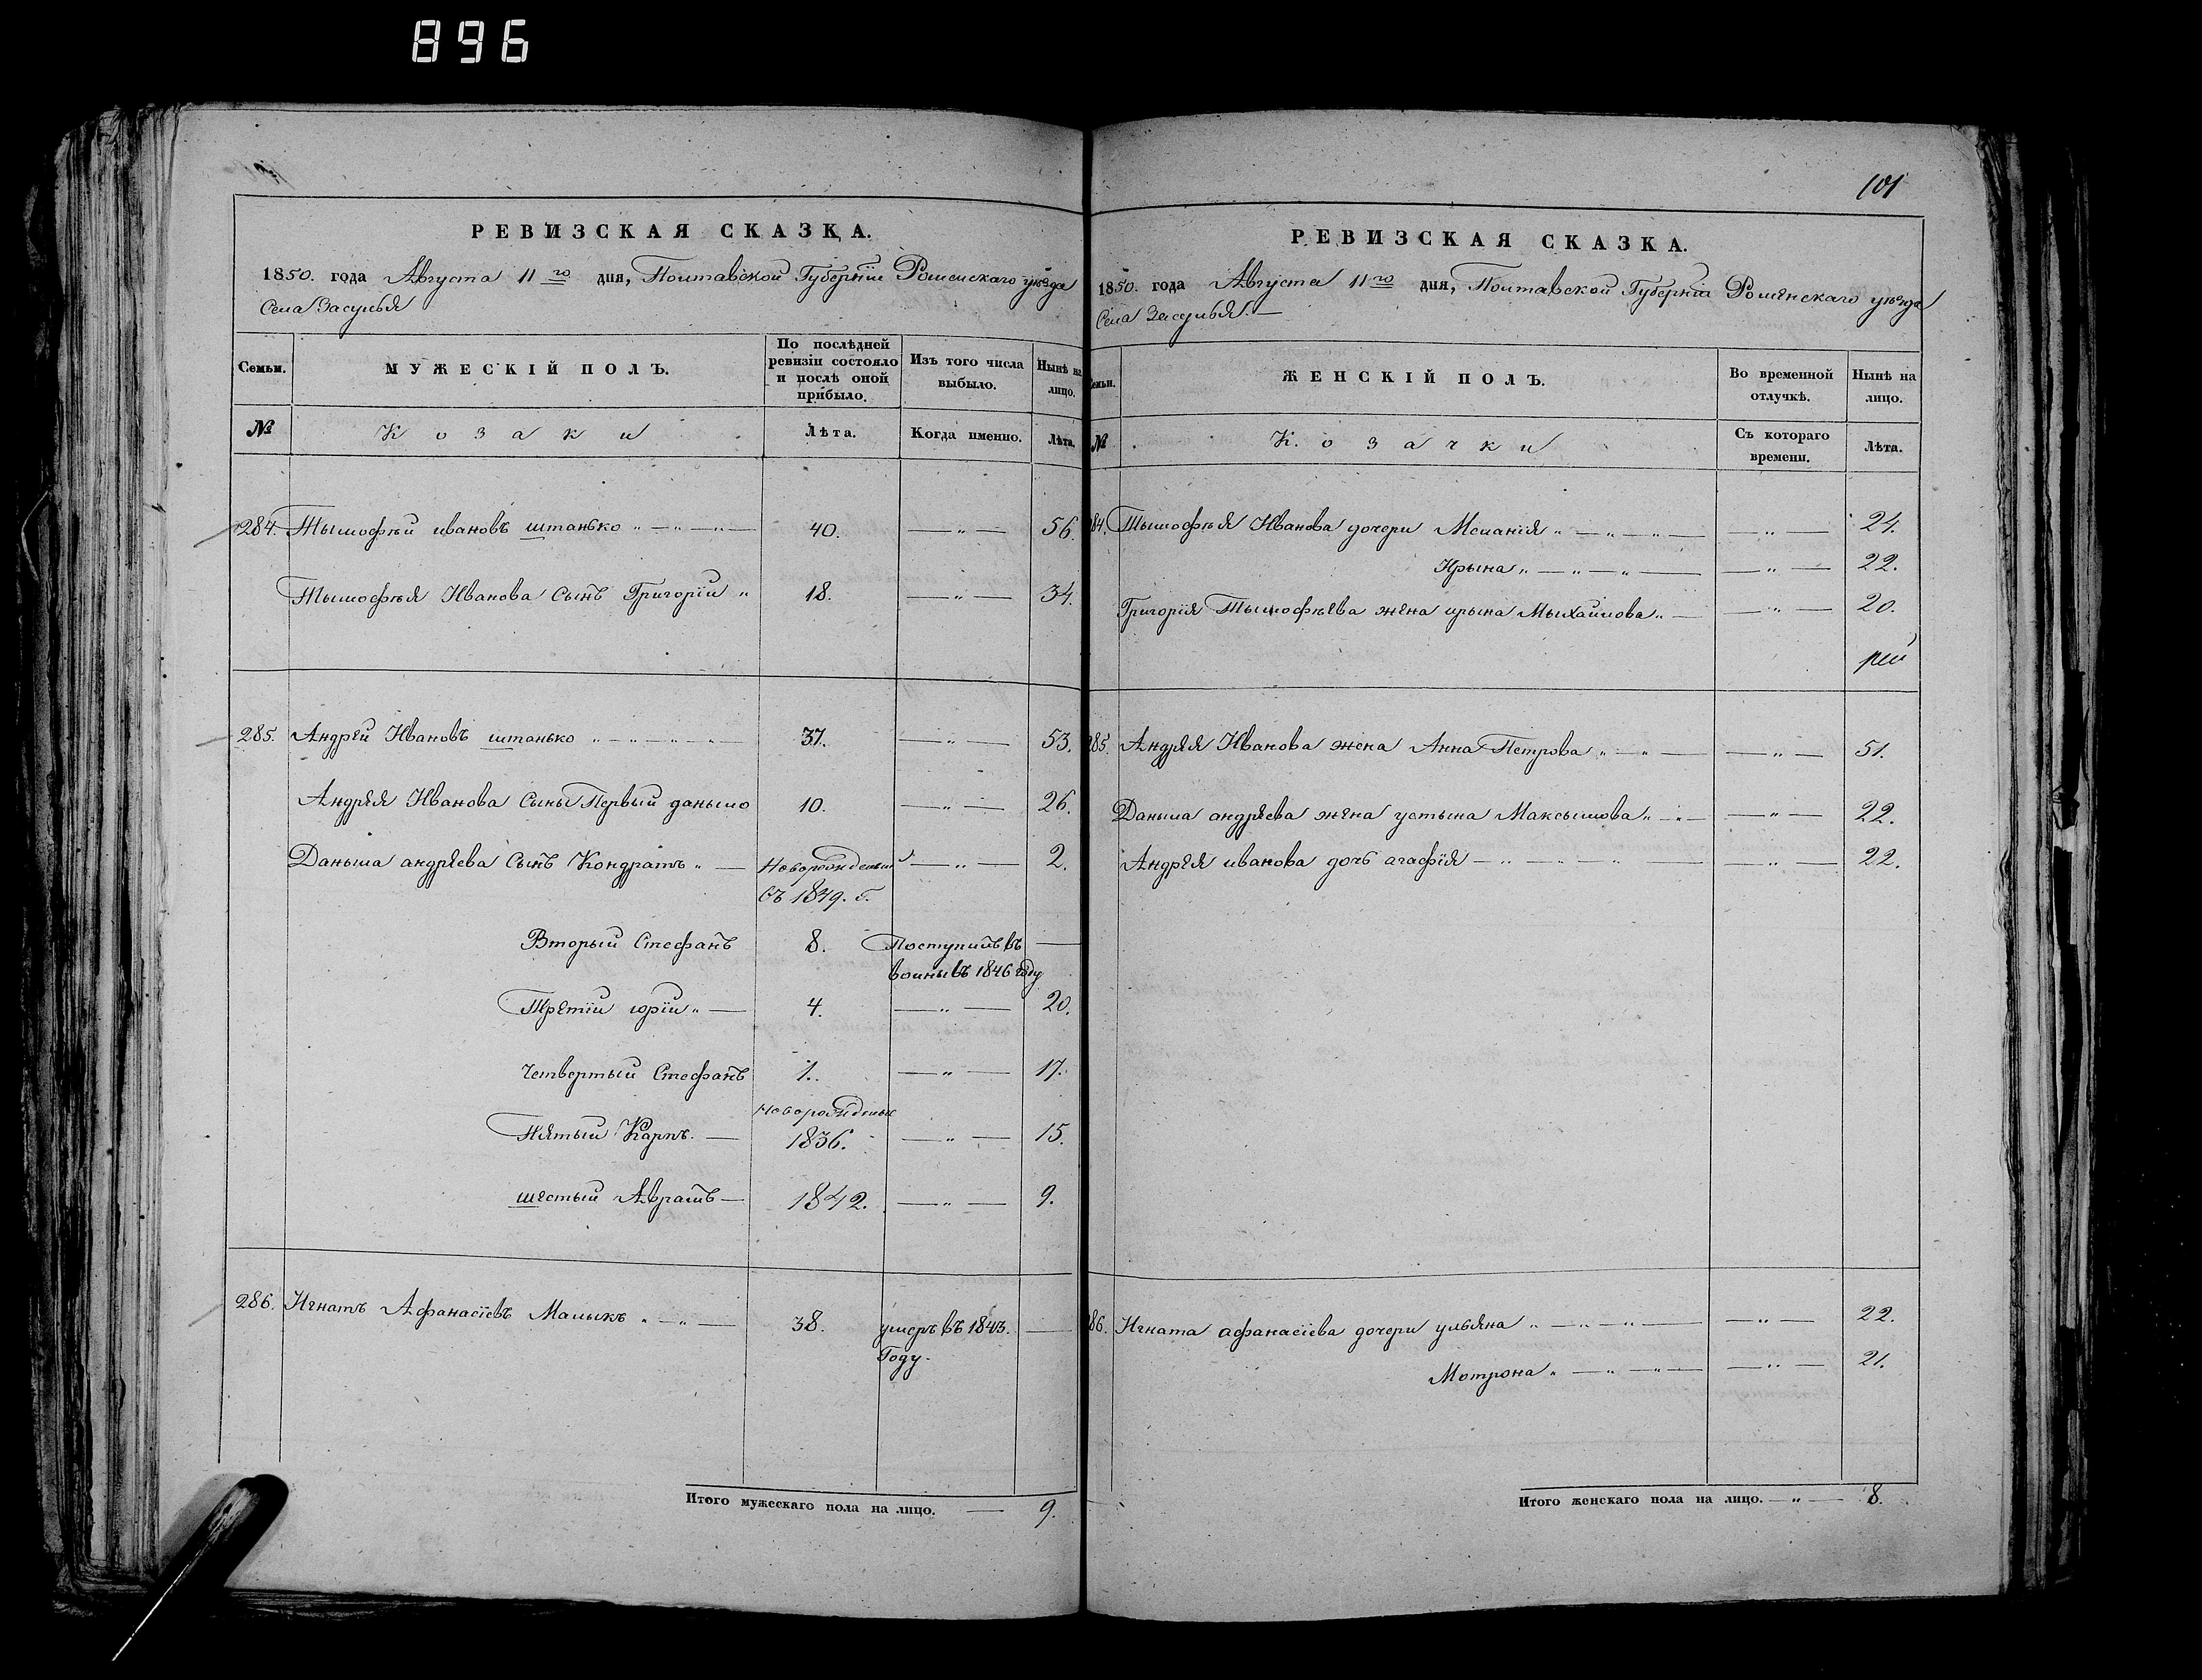 896
РЕВИЗСКАЯ СКАЗКА.
1850. года Августа 11го дня, Полтавской Губерніи Роменскаго уѣзда
Села Засулья
Семьи.
МУЖЕСКІЙ ПОЛЪ.
По послѣдней ревизіи состояло и послѣ оной прибыло.
Изъ того числа выбыло.
Нынѣ на лицо.
№
Козаки
Лѣта.
Когда именно.
Лѣта.
284. Тымофѣй ивановъ штанько „ — „ — „ — 40. — „ — 56.
Тымофѣя Иванова Сынъ Григорій „ 18. — „ — 34.
285. Андрей Ивановъ штанько „ — „ — „ — „ 37. — „ — 53.
Андрея Иванова Сыны Первый даныло 10. — „ — 26.
Даныла андреева Сынъ Кондратъ „ — Новорожденный — „ — 2.
съ 1849. г.
Вторый Стефанъ 8. Поступилъ въ —
воины въ 1846 году
Третій юрій „ — 4. — „ — 20.
Четвертый Стефанъ 1. — „ — 17.
Новорожденые
Пятый Карпъ. — 1836. — „ — 15.
шестый Аврамъ — 1842. — „ — 9.
286. Игнатъ Афанасіевъ Малыкъ „ — „ — 38. умеръ въ 1843. —
Году.
Итого мужескаго пола на лицо. — 9.
101
РЕВИЗСКАЯ СКАЗКА.
1850. года Августа 11го дня, Полтавской Губерніи Роменскаго уѣзда
Села Засулья. —
емьи.
ЖЕНСКІЙ ПОЛЪ.
Во временной отлучкѣ.
Нынѣ на лицо.
№
Козачки
Съ котораго времени.
Лѣта.
84. Тымофѣя Иванова дочери Меланія „ — „ — „ — — „ — 24.
Ирына „ — „ — „ — — „ — 22.
Григорія Тымофѣева жена ирына Мыхайлова „ — — „ — 20.
285. Андрея Иванова жена Анна Петрова „ — „ — — „ — 51.
Даныла андреева жена устына Максымова „ — „ — — „ — 22.
Андрея иванова дочь агафія — „ — „ — „ — — „ — 22.
86. Игната афанасіева дочери ульяна „ — „ — „ — — „ — 22.
Мотрона „ — „ — „ — — „ — 21.
Итого женскаго пола на лицо. — „ — 8.